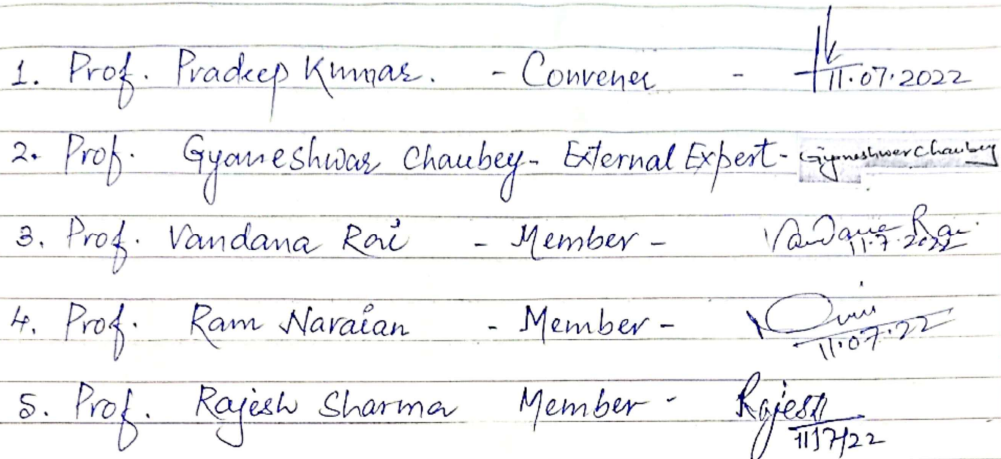 1. Prof. Pradeep Kumar. - Convener - 11.07.2022
2. Prof. Gyaneshwar Chaubey - External Expert - Gyaneshwer Chaubey
3. Prof. Vandana Rai - Member - Vandana Rai 11.7.2022
4. Prof. Ram Naraian - Member - 11.07.22
5. Prof. Rajesh Sharma Member - Rajesh 11/7/22